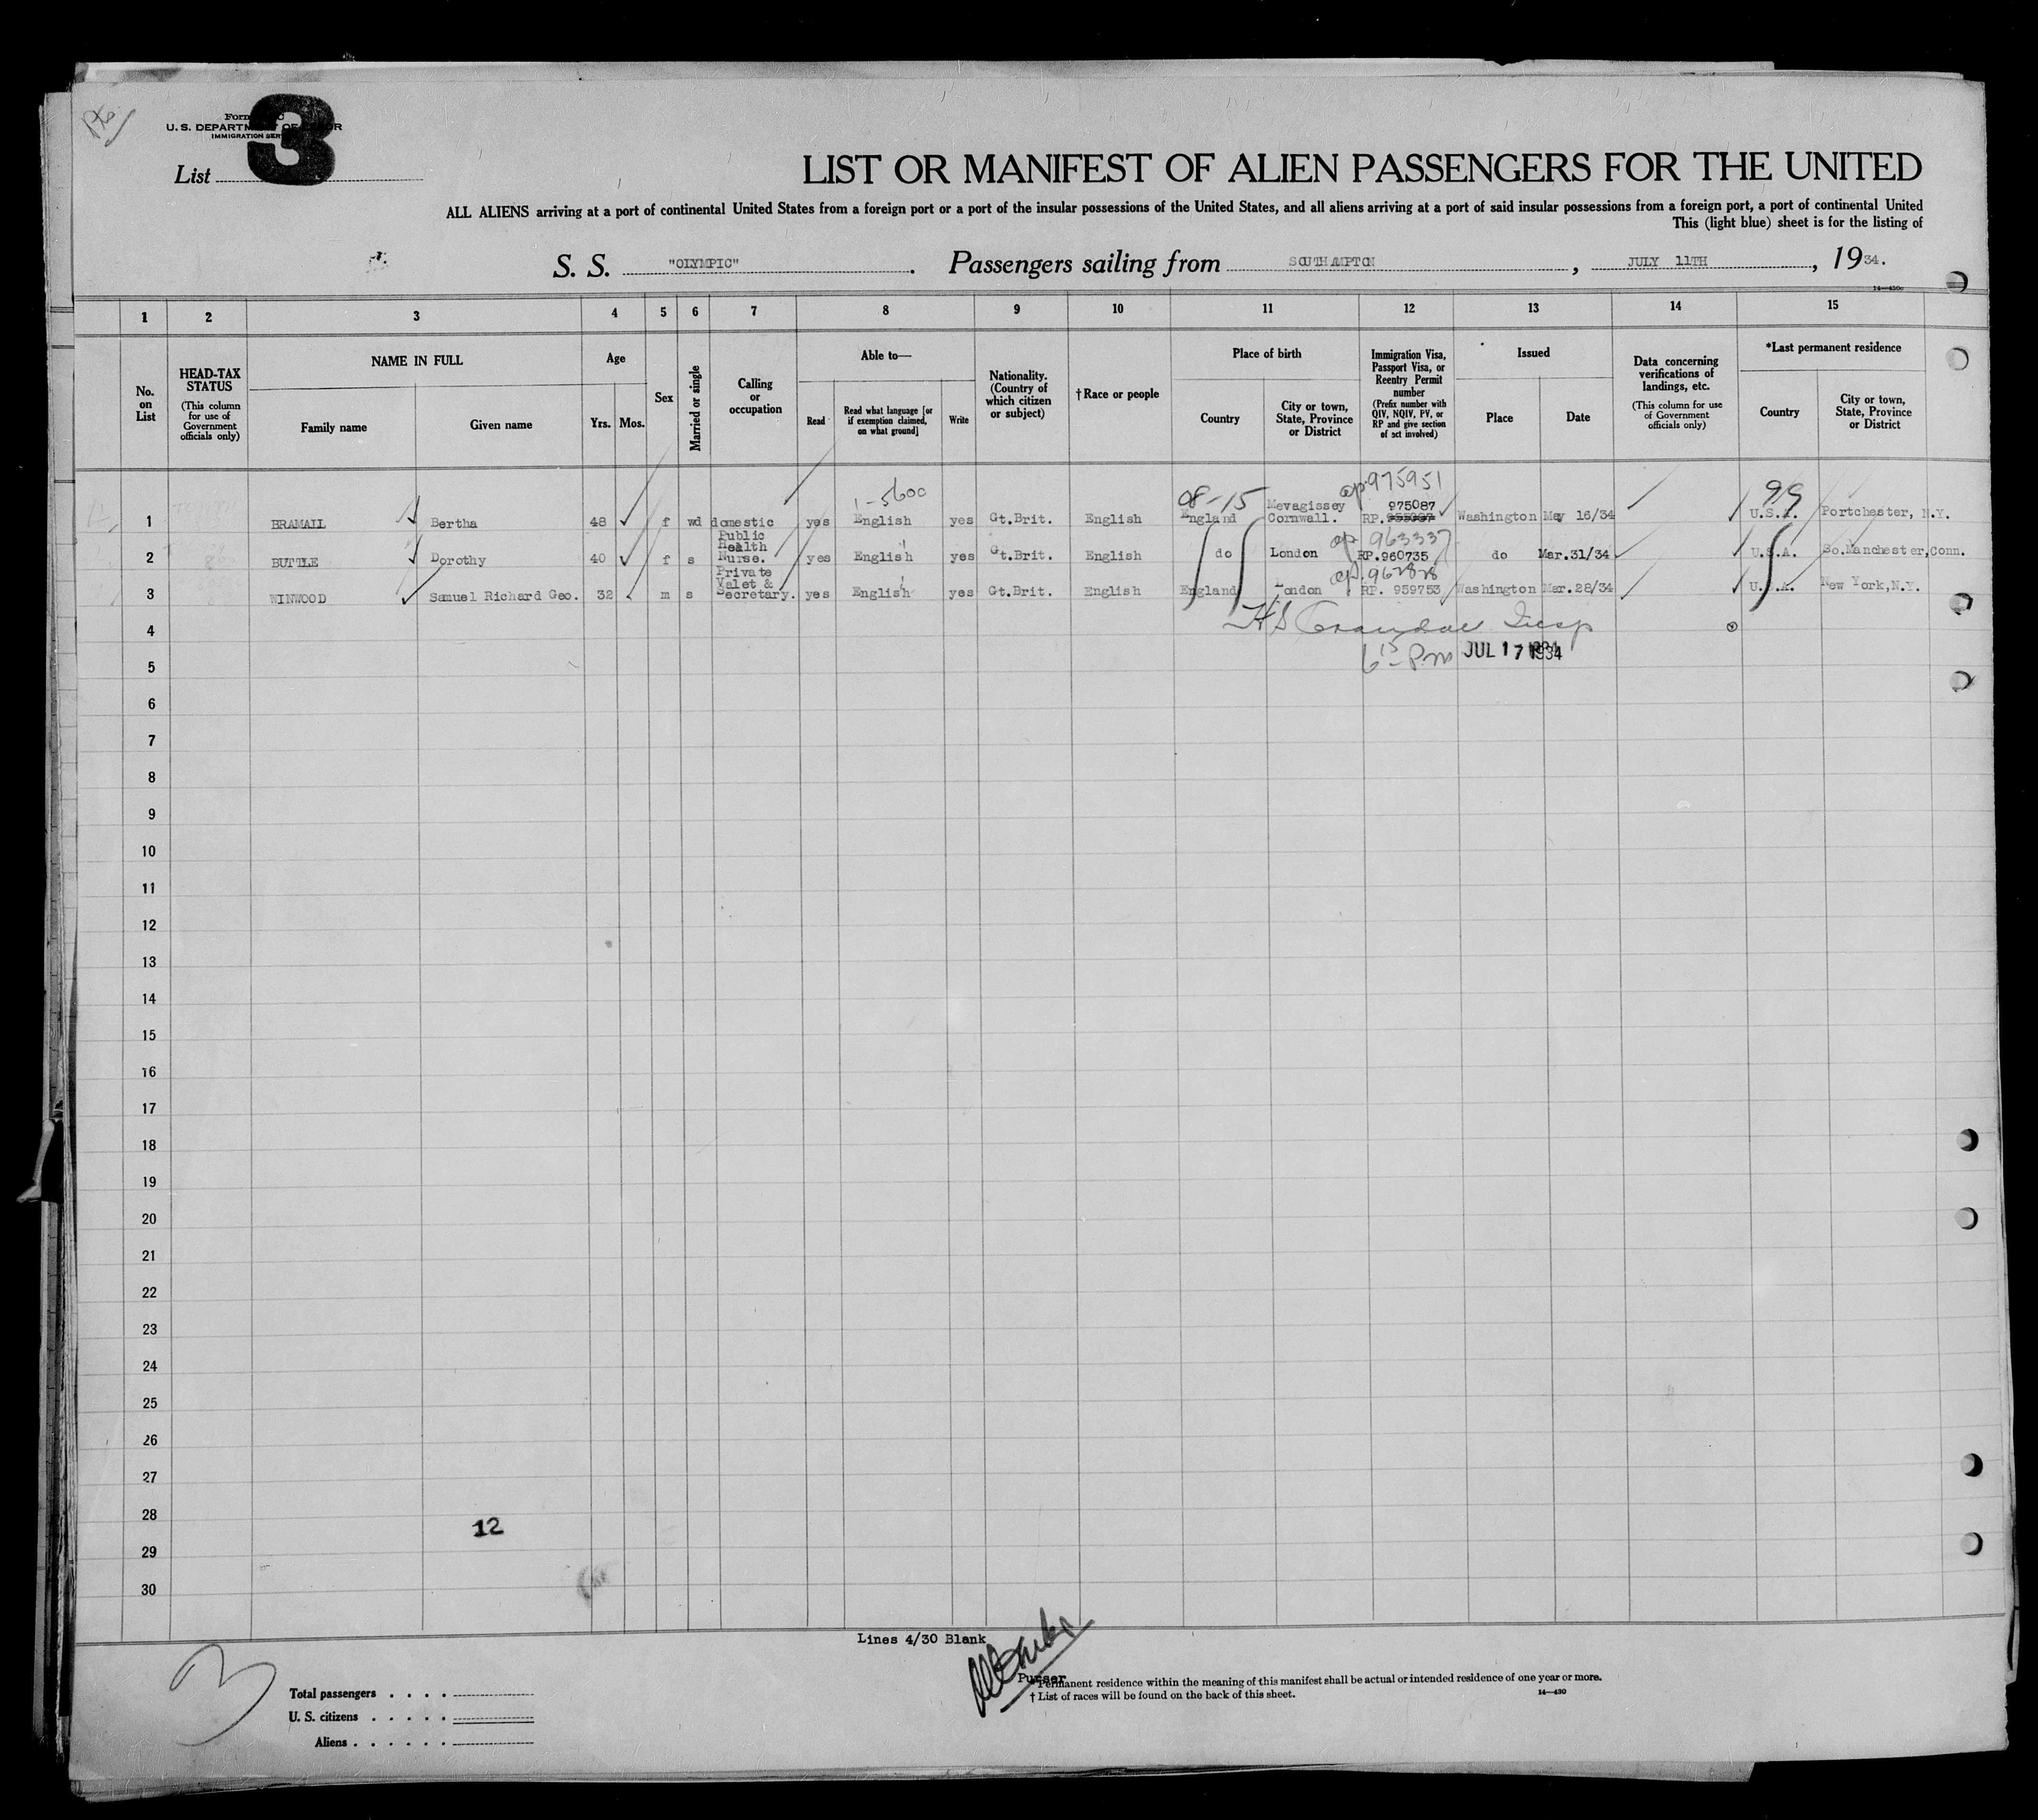 3
U.S. DEPARTMENT OF LABOR
IMMIGRATION SERVICE
List
LIST OR MANIFEST OF ALIEN PASSENGERS FOR THE UNITED
ALL ALIENS arriving at a port of continental United States from a foreign port or a port of the insular possessions of the United States, and all aliens arriving at a port of said insular possessions from a foreign port, a port of continental United
This (light blue) sheet is for the listing of
S. S. "OLYMPIC". Passengers sailing from SOUTHAMPTON, JULY 11TH, 1934.
1 2 3 4 5 6 7 8 9 10 11 12 13 14 15
No. on List
HEAD-TAX STATUS (This column for use of Government officials only)
NAME IN FULL
Family name
Given name
Age
Yrs. Mos.
Sex
Married or single
Calling or occupation
Able to—
Read
Read what language [or if exemption claimed, on what ground]
Write
Nationality. (Country of which citizen or subject)
†Race or people
Place of birth
Country
City or town, State, Province or District
Immigration Visa, Passport Visa, or Reentry Permit number (Prefix number with QIV, NQIV, PV, or RP and give section of act involved)
Issued
Place
Date
Data concerning verifications of landings, etc. (This column for use of Government officials only)
*Last permanent residence
Country
City or town, State, Province or District
1-5600 08-15 ap.975951 99
1 BRAMALL Bertha 48 f wd domestic yes English yes Gt.Brit. English England Mevagissey Cornwall. 975087 RP. Washington May 16/34 U.S.A. Portchester, N.Y.
ap 963337
2 BUTTLE Dorothy 40 f s Public Health Nurse. yes English yes Gt.Brit. English do London RP.960735 do Mar.31/34 U.S.A. So.Manchester,Conn.
ap. 962828
3 WINWOOD Samuel Richard Geo. 32 m s Private Valet & Secretary. yes English yes Gt.Brit. English England London RP. 959753 Washington Mar.28/34 U.S.A. New York,N.Y.
4
Insp
5
6 15 P.m JUL 17 1934
6
7
8
9
10
11
12
13
14
15
16
17
18
19
20
21
22
23
24
25
26
27
28
12
29
30
Lines 4/30 Blank
Purser
3
Total passengers
U. S. citizens
Aliens
*Permanent residence within the meaning of this manifest shall be actual or intended residence of one year or more.
† List of races will be found on the back of this sheet.
14—430